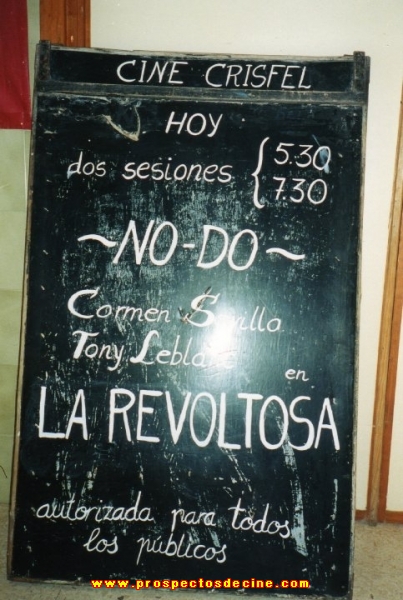 CINE CRISFEL
HOY
dos sesiones { 5.30
7.30
~NO-DO~
Carmen Sevilla
Tony Leblanc
en
LA REVOLTOSA
autorizada para todos
los públicos
www.prospectosdecine.com